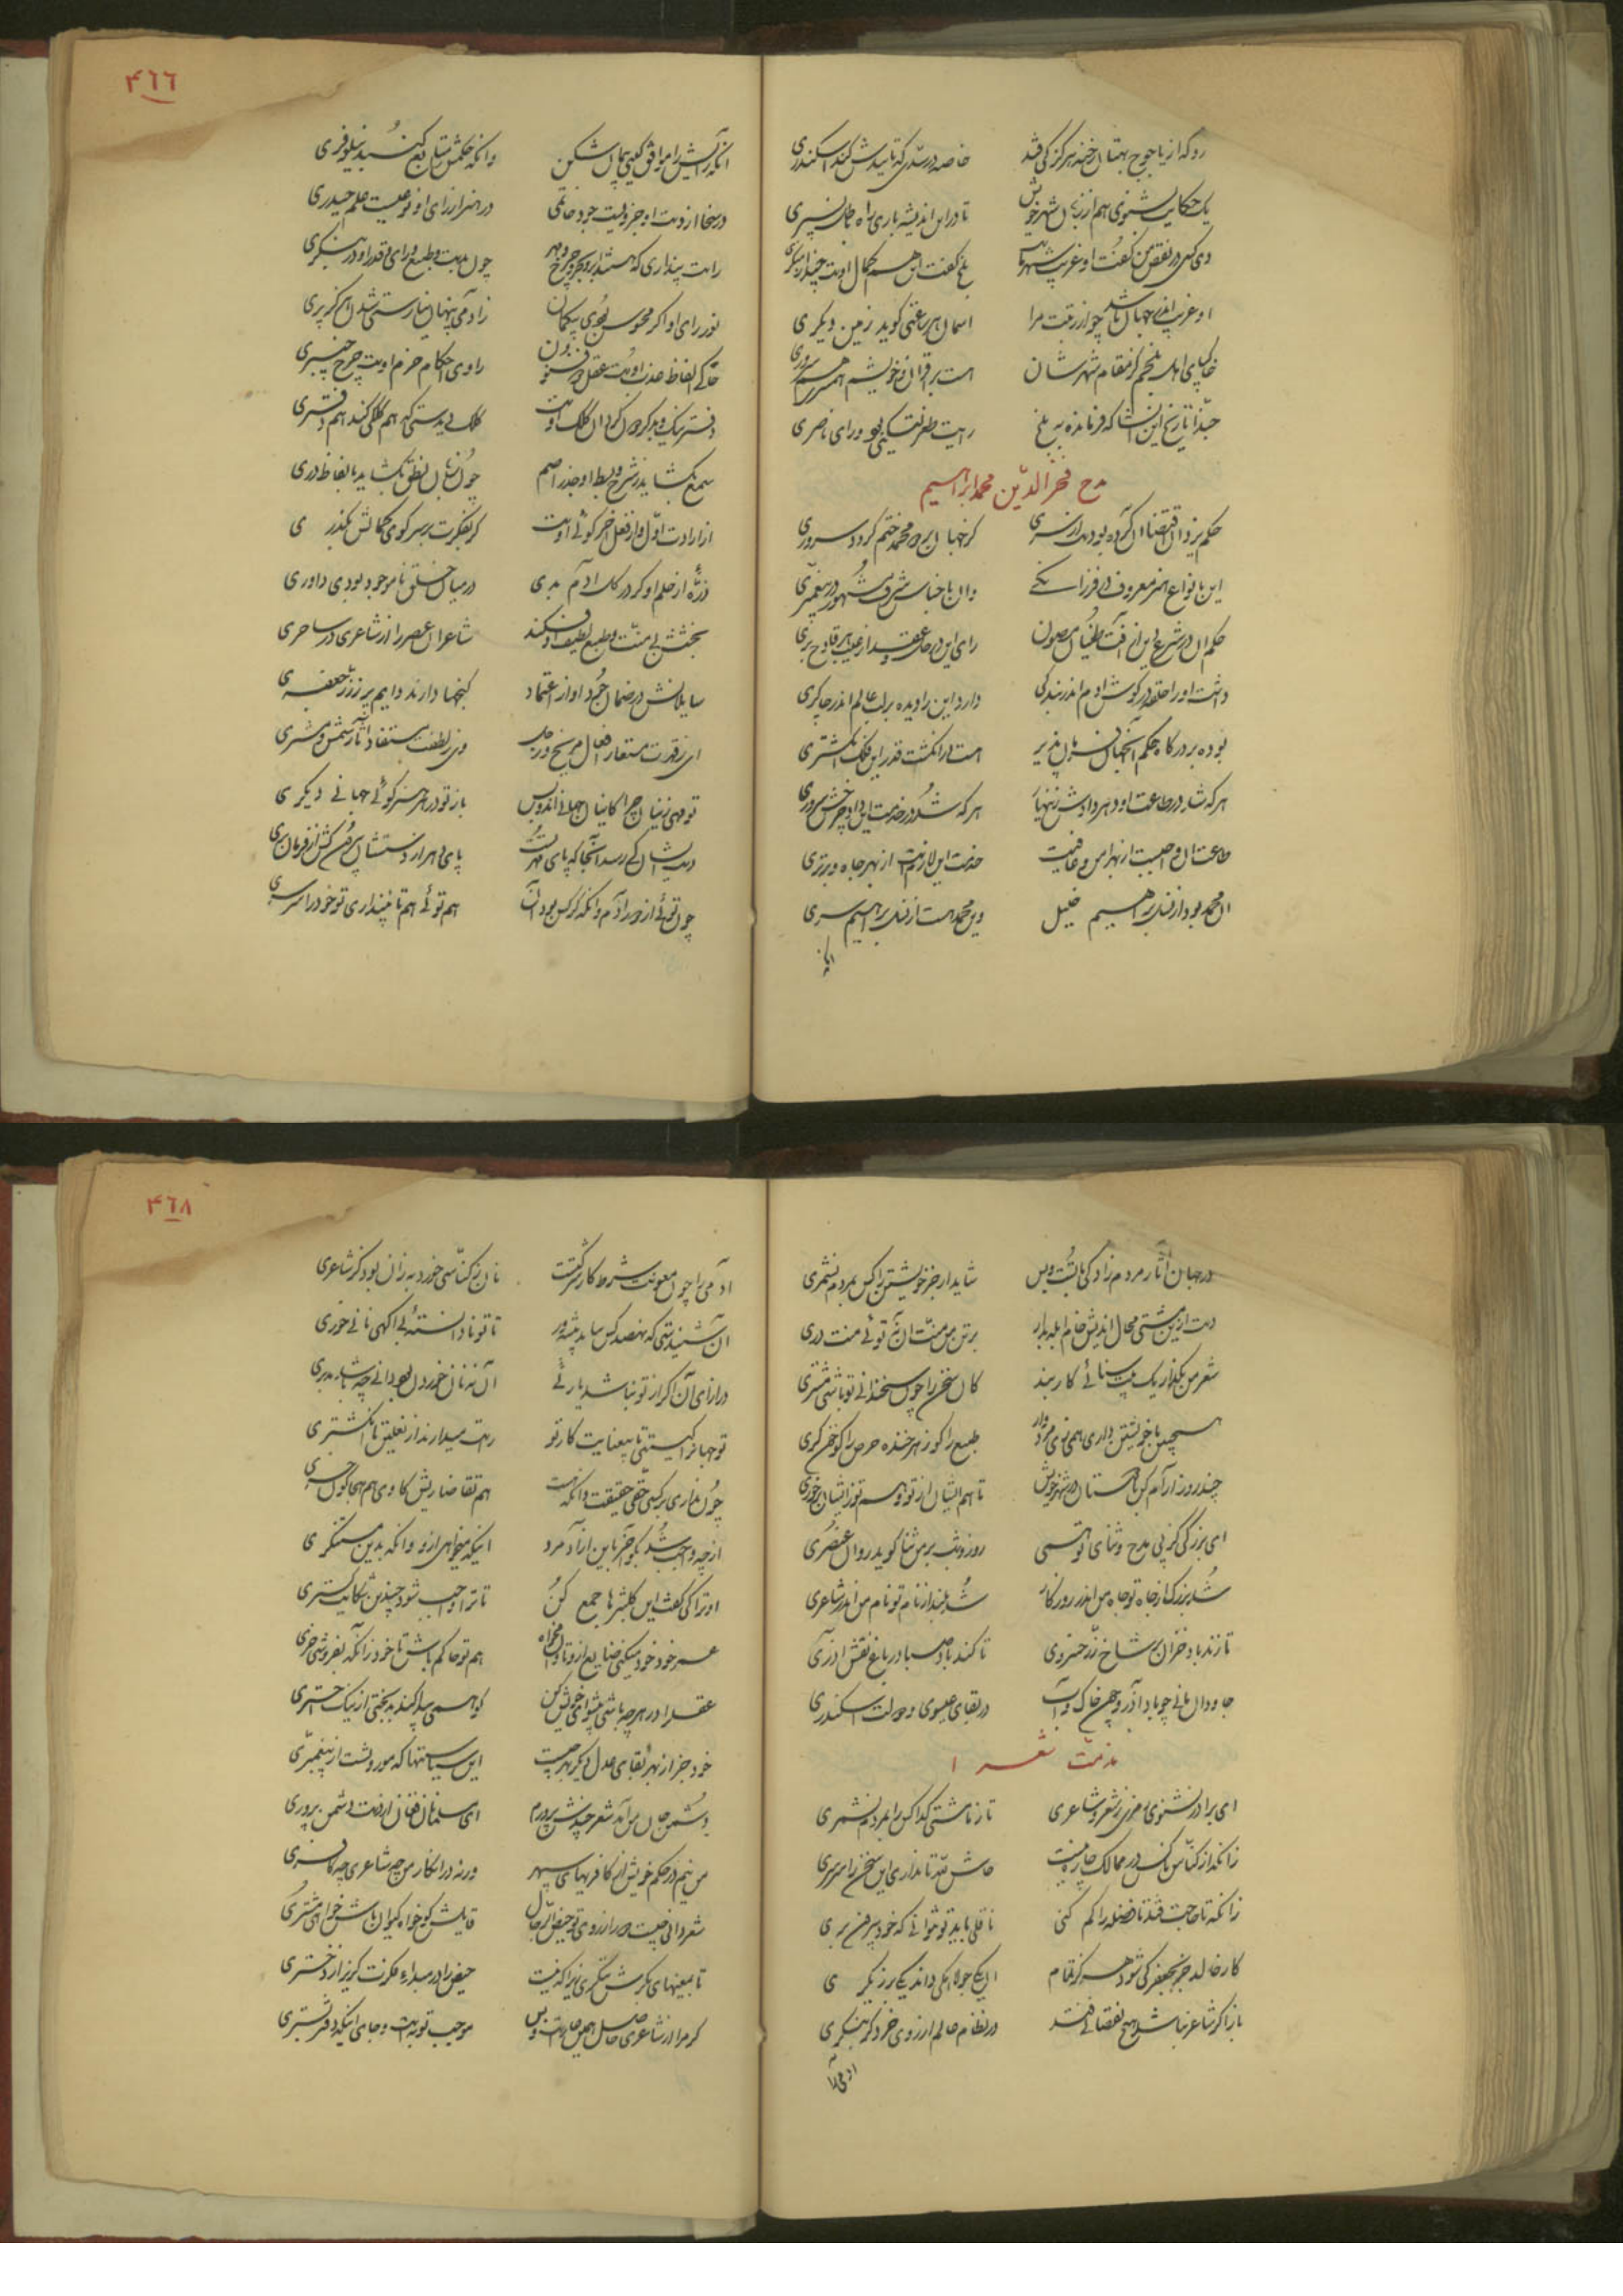 رو که از یاجوج بهتان رخنه هرگز کی فتد خاصه در سدی که تاییدش کند اسکندری
یک حکایت بشنوی هم از زبان شهر خویش تا در این اندیشه باری راه باطل نسپری
دی کسی در نقص من گفت او غریب شهر ماست بلخ گفت این هم کمال اوست چند از منکری
او غریب اندر جهان باشد چو از رتبت مرا اسمان هر ساعتی گوید زمین دیگری
خاکپای اهل بلخم کز مقام شهرشان هست بر اقران خویشم هم سری هم سروری
حبذا تاریخ این انشا که فرمانده به بلخ رایت طغرلتکینی بود و رای ناصری
مدح فخر الدین محمد ابراهیم
حکم یزدان اقتضا ان کرده بود در سری کز جهان بر دو محمد ختم گردد سروری
این بانواع هنر معروف در فرزانگی وان باجناس شرف مشهور در پیغمبری
حکم ان در شرع دین از آفت طغیان مصون رای این در حل و عقد از عیب هر قادح بری
داشت اور احلقه در گوش ادم اندر بندگی دارد این را دیده بر لب عالم اندر چاکری
بوده بر درگاه حکم آنجهان فرمان پذیر هست در انگشت قدر این فلک انگشتری
هر که شد در طاعت او دهر دادش زینهار هر که شد در خدمت این داد چرخش سروری
طاعت ان واجبست از بهر امن و عافیت خدمت این لازمست از بهر جاه و برتری
ان محمد بود از نسل براهیم خلیل وین محمد هست از نسل براهیم سری
۴٦٦
انکه رایش را موافق گیتی پیمان شکن وانکه حکمش را متابع گنبد نیلوفری
در سخا از دست او جزویست جود حاتمی در هنر از رای او نوعیست علم حیدری
راست پنداری که هستند ابر و بحر و چرخ و مهر چون بدست و طبع و رای و قدر او در بنگری
نور رای او اگر محسوس بودی بیگمان زادمی پنهان نیارستی شدن هرگز پری
حاکی الفاظ عذب اوست عقل ذو فنون راوی احکام حزم اوست چرخ چنبری
دفتر نیک و بد گردون گردان کلک اوست کلک بی دستی که هم کلکی کند هم دفتری
سمع بگشاید ز شرح و بسط او جذر اصم چون زبان نطق بگشاید بالفاظ دری
از ارادت اول و از فعل اخر گوئی اوست گر بفکرت بر سر کوی کمالش بگذری
ذره از حلم او گر در گل ادم بدی در میان خلق نا موجود بودی داوری
بخشش بی منت و طبع لطیف او فکند شاعران عصر را از شاعری در ساحری
سایلانش در ضمان جود او از اعتماد گنجها دارند دایم پر ز زر جعفری
ای ز قدرت مستعار افعال مریخ و زحل وی ز لطفت مستفاد آثار شمس و مشتری
تو مهی زینان چرا کاینان جهانی اند و بس باز تو در هر هنر گوئی جهانی دیگری
دست ایشان کی رسد آنجا که پای قدر تست پای بر هر از دستشان بیرون کش از فرمان بری
چون توئی از دور ادم وانکه در کس بود آن هم توئی هم تا نپنداری تو خود را سرسری
در جهان آثار مردم زادگی باتست و بس شاید ار جز خویشتن را کس بمردم نشمری
دست ازین مشتی محال اندیش خام ابله بدار برتن من منت ان نه توئی منت دری
شعر من بگذار یک بیت سنائی کار بند کان سخن را چون سخندانی تو باشد مشتری
همچنین با خویشتن داری همی زی مردوار طبع را گو زهر خنده حرص را گو خون گری
چند روز آرام کن با دوستان در شهر خویش تا هم ایشان از تو و هم تو ز ایشان بر خوری
ای بزرگی کز پی مدح و ثنای تو همی روز و شب بر من ثنا گوید روان عنصری
شد بزرگ از جاه تو جاه من اندر روزگار شد بلند از نام تو نام من اندر شاعری
تا زند باد خزان بر شاخ زر خسروی تا کند باد صبا در باغ نقش اذری
جاودان مانی چو باد اذر و چون خاک و آب در بقای عیسوی و دولت اسکندری
مذمت شعرا
ای برادر بشنوی رمزی ز شعر و شاعری تا ز ما مشتی گدا کس را بمردم نشمری
زانکه از کناس ناکس در ممالک چاره نیست حاش لله تا نداری این سخن را سرسری
زانکه تا حاجت فتد تا فضله را کم کنی ناقلی باید تو نتوانی که خود بیرون بری
کار خالد جز بجعفر کی شود هرگز تمام ان یکی جولاهگی داند یکی برزیگری
باز اگر شاعر نباشد هیچ نقصانی فتد در نظام عالم از روی خرد گر بنگری
ادمی را
۴٦۸
ادمی را چون معونت شرط کار شرکتست نان ز کناسی خورد به زان بود کز شاعری
آن شنیدستی که نهصد کس بباید پیشه ور تا تو نادانسته و بی اگهی نانی خوری
در ازای آن اگر از تو نباشد یاری آن نه نان خوردن بود دانی چه باشد مدبری
تو جهان را کیستی تا بیمعونت کار تو راست میدارند از نعلین تا انگشتری
چون نداری بر کسی حقی حقیقت دانکه هست هم تقاضا ریش گاوی هم هجا کون خری
از چه واجب شد بگو آخر بر این ازاد مرد اینکه میخواهی ازو وانکه بدین مستنکری
او ترا کی گفت این کلپترها جمع کن تا ترا واجب شود چندین شکایت گستری
عمر خود خود میکنی ضایع ازو تاوان مخواه هم تو حاکم باش تا خود زانکه بفروشی خری
عقل را در هر چه باشی پیشوای خویش کن کو همی پیدا کند بدبختی از نیک اختری
خود جز از بهر بقای عدل دیگر بهر چیست این سیاستها که موروثست از پیغمبری
دشمن جان من آمد شعر چندش پرورم ای مسلمانان فغان از دست دشمن پروری
من نیم در حکم خویش از کافریهای سپهر ورنه در انکار من چه شاعری چه کافری
شعر دانی چیست دور از روی تو حیض الرجال قایلش گو خواه کیوان باش خواهی مشتری
تا بمعنیهای بکرش ننگری زیرا که نیست حیض را در مبداء فکرت گریز از دختری
گر مرا از شاعری حاصل همین عارست و بس موجب توبه است و جای اینکه دفتر بستری